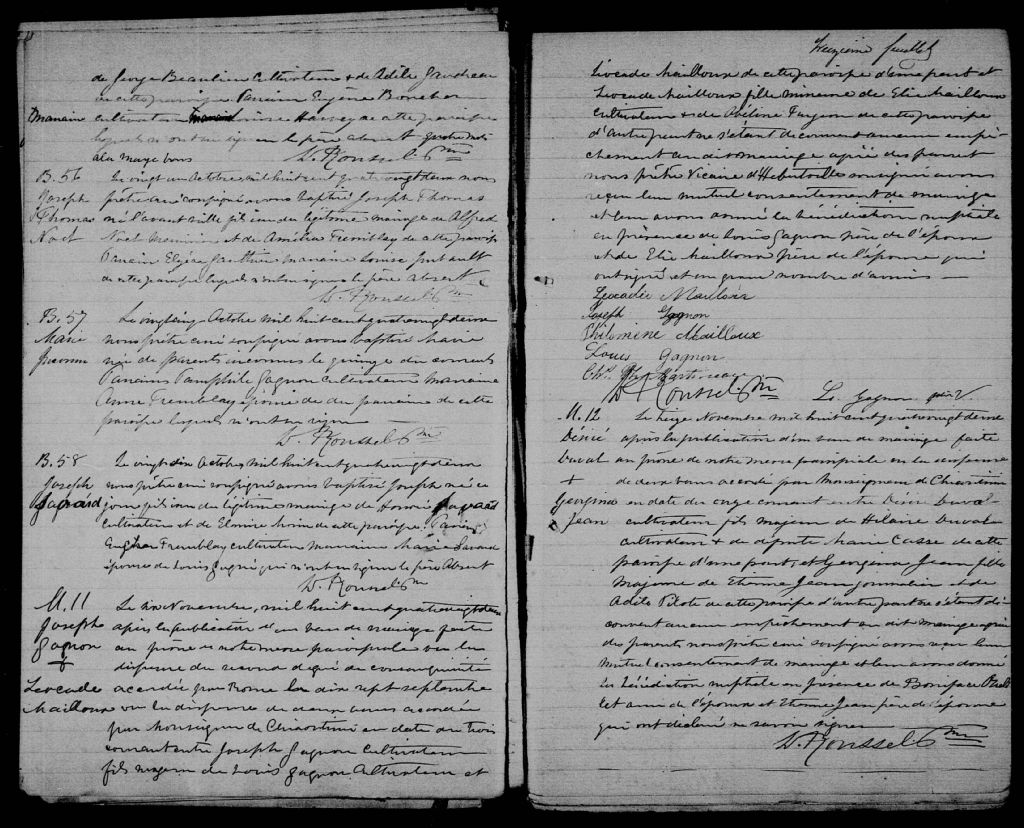 de George Beaulieu Cultivateur & de Adèle Gaudreau
de cette paroisse Parrain Eugène Boucher
Marraine
cultivateur Harvey de cette paroisse
lesquels n'ont su signer le père absent
à la marge bons
D. Roussel Ptre
B. 56
Joseph
Thomas
Noel
Le vingt un Octobre mil huit cent quatre vingt deux nous
prêtre curé soussigné avons baptisé Joseph Thomas
né l'avant veille fils de légitime mariage de Alfred
Noel et de Amélia Tremblay de cette paroisse
Parrain Elzéar Gauthier marraine Louise
de cette paroisse lesquels n'ont su signer le père absent
D. Roussel Ptre
B. 57
Marie
Inconnu
Le Octobre mil huit cent quatre vingt deux
nous prêtre curé soussigné avons baptisé Marie
née de parents inconnus le quinze du courant
Parrain Pamphile Gagnon Cultivateur marraine
Anne Tremblay épouse du parrain de cette
paroisse lesquels n'ont su signer
D. Roussel Ptre
B. 58
Joseph
Gagné
Le vingt six Octobre mil huit cent quatre vingt deux
nous prêtre curé soussigné avons baptisé Joseph né ce
jour fils de légitime mariage de Honoré
cultivateur et de Elmire de cette paroisse Parrain
Tremblay cultivateur marraine Marie Savard
épouse de Louis Gagné qui n'ont su signer le père absent
D. Roussel Ptre
M. 11
Joseph
Gagnon
&
Leocade
Mailloux
Le six Novembre, mil huit cent quatre vingt deux
après la publication d'un ban de mariage faite
au prone de notre messe paroissiale vu la
dispense du second degré de consanguinité
accordée par Rome le dix sept septembre
vu la dispense de deux bans accordée
par Monseigneur de Chicoutimi en date du trois
courant entre Joseph Gagnon Cultivateur
fils majeur de Louis Gagnon Cultivateur et
Treizième feuillet
Leocade Mailloux de cette paroisse d'une part et
Leocade Mailloux fille mineure de Elie Mailloux
cultivateur & de de cette paroisse
d'autre part ne s'étant découvert aucun empê-
chement au dit mariage après des parents
nous prêtre Vicaire d'Hébertville soussigné avons
reçu leur mutuel consentement de mariage
et leur avons donné la bénédiction nuptiale
en présence de Louis Gagnon père de l'époux
et de Elie Mailloux père de l'épouse qui
ont signé et un grand nombre d'amis
Leocadie Mailoux
Joseph Gagnon
Philomène Mailloux
Louis Gagnon
D. Roussel Ptre
L. Gagnon ptre V.
M. 12
Désiré
Duval
+
Georgina
Jean
Le treize Novembre mil huit cent quatre vingt deux
après la publication d'un ban de mariage faite
au prone de notre messe paroissiale vu la dispense
de deux bans accordée par Monseigneur de Chicoutimi
en date du onze courant entre Désiré Duval
cultivateur fils majeur de Hilaire Duval
cultivateur & de défunte Marie Casse de cette
paroisse d'une part, et Georgina Jean fille
majeure de Etienne Jean journalier et de
Adèle Pilote de cette paroisse d'autre part ne s'étant dé-
couvert aucun empêchement au dit mariage après
des parents nous prêtre curé soussigné avons reçu leur
mutuel consentement de mariage et leur avons donné
la bénédiction nuptiale en présence de Boniface
et ami de l'époux et Etienne Jean père de l'épouse
qui ont déclaré ne savoir signer
D. Roussel Ptre